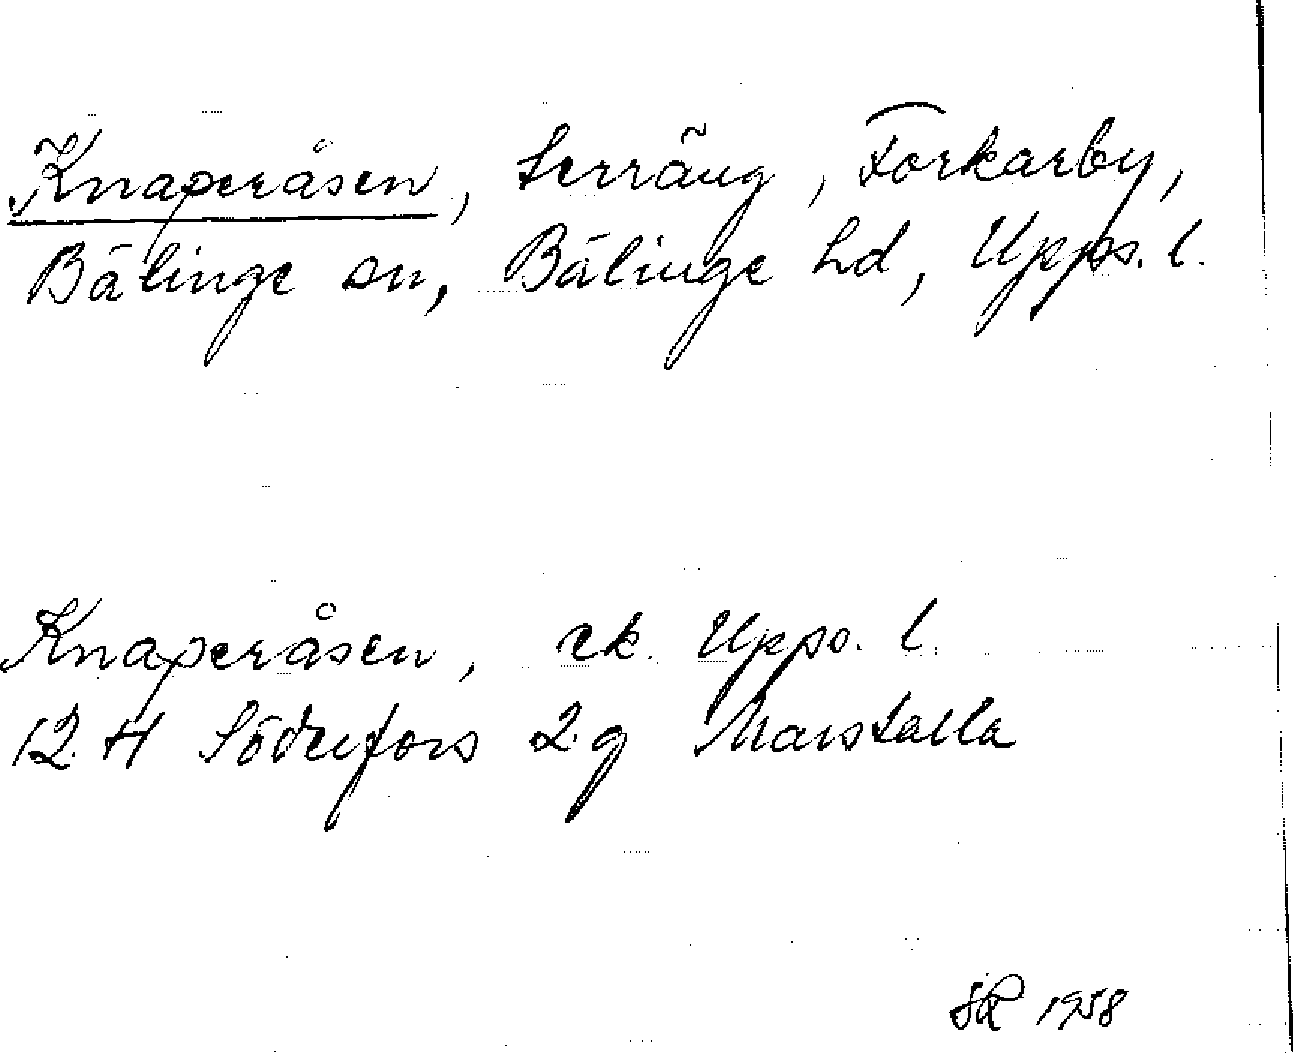 Knaperåsen, terräng, Forkarby,
Bälinge sn, Bälinge hd, Upps. l.
Knaperåsen, ek. Upps. l.
12 H Söderfors 2 g Marstalla
1958